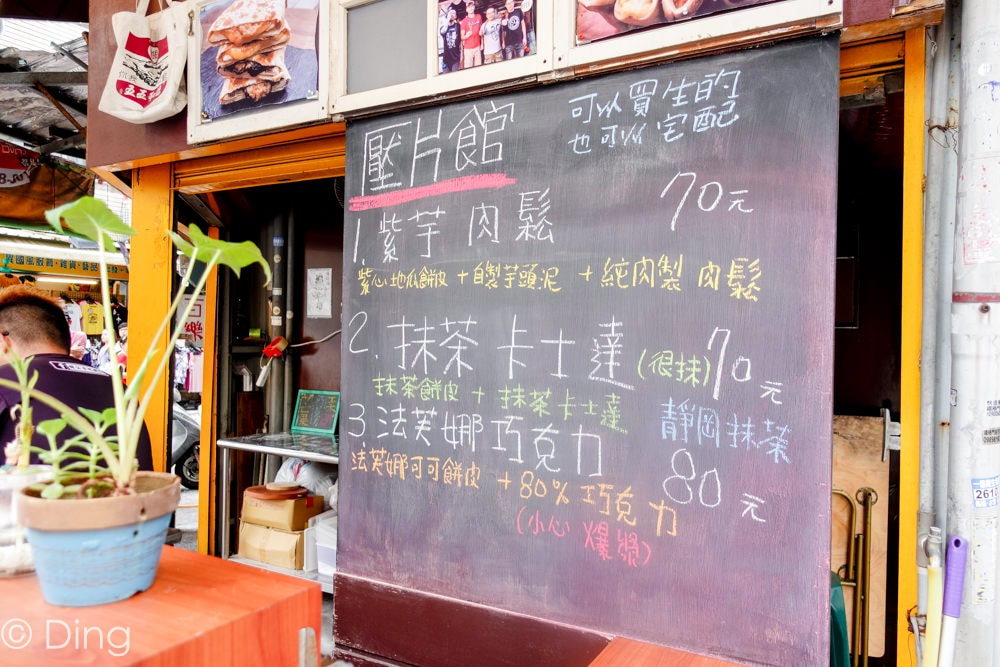 壓片館
可以買生的
也可以宅配
1.紫芋 肉鬆 70元
紫心地瓜餅皮 + 自製芋頭泥 + 純肉製 肉鬆
2.抹茶 卡士達 (很抹) 70元
抹茶餅皮 + 抹茶卡士達 靜岡抹茶
3.法芙娜 巧克力 80元
法芙娜可可餅皮 + 80% 巧克力
(小心 爆漿)
© Ding